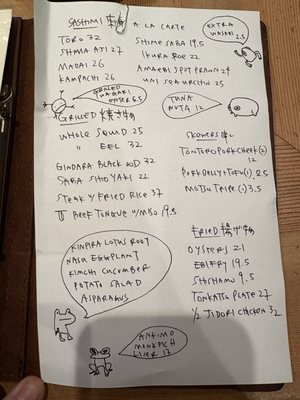 SASHIMI A LA CARTE
EXTRA WASABI 2.5
TORO 32
SHIMA AJI 27
MADAI 26
KAMPACHI 26
SHIME SABA 19.5
IKURA ROE 22
AMAEBI SPOT PRAWN 24
UNI SEA URCHIN 25
GRILLED OYSTER 6.5
TUNA NUTA 12
GRILLED
WHOLE SQUID 25
" EEL 32
GINDARA BLACK COD 32
SABA SHIOYAKI 22
STEAK W FRIED RICE 37
BEEF TONGUE W/MISO 19.5
SKEWERS
TONTORO PORK CHEEK (2) 12
PORK BELLY & TOFU (1) 8.5
MOTSU TRIPE (1) 3.5
KINPIRA LOTUS ROOT
NASU EGGPLANT
KIMCHI CUCUMBER
POTATO SALAD
ASPARAGUS
FRIED 揚げ物
OYSTERS 21
EBI FRY 19.5
SHISHAMO 9.5
TONKATSU PLATE 27
1/2 JIDORI CHICKEN 32
ANKIMO
MONKFISH
LIVER 17